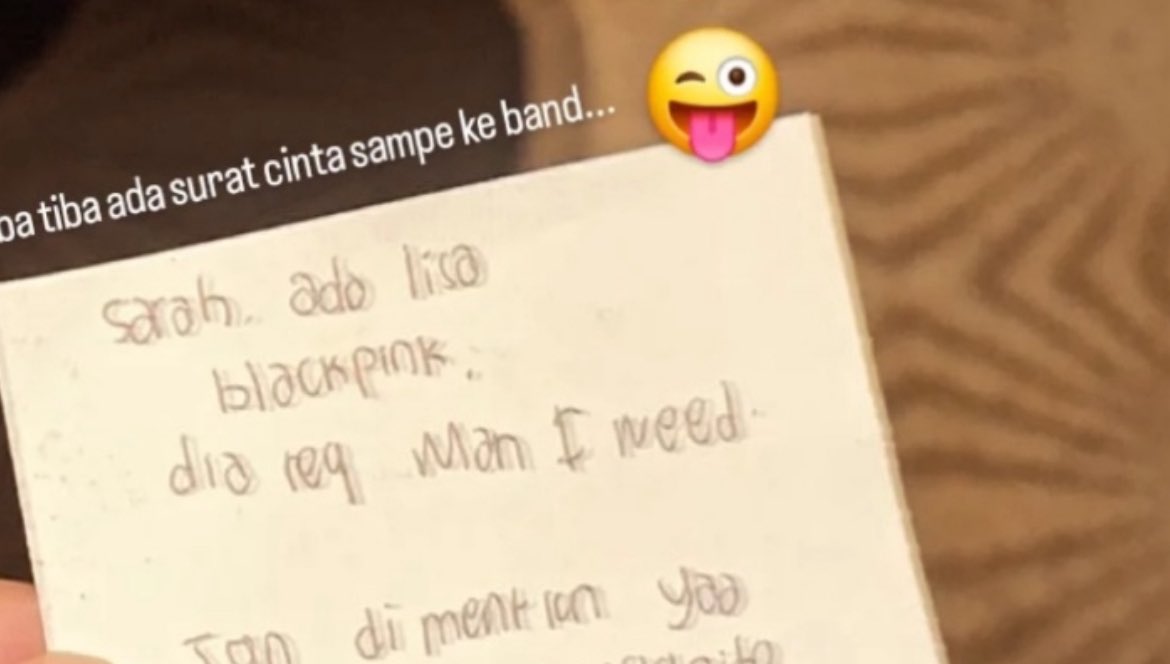 ba tiba ada surat cinta sampe ke band...
Sarah.. ada lisa
blackpink.
dia req Man I need.
Jan di mention yaa